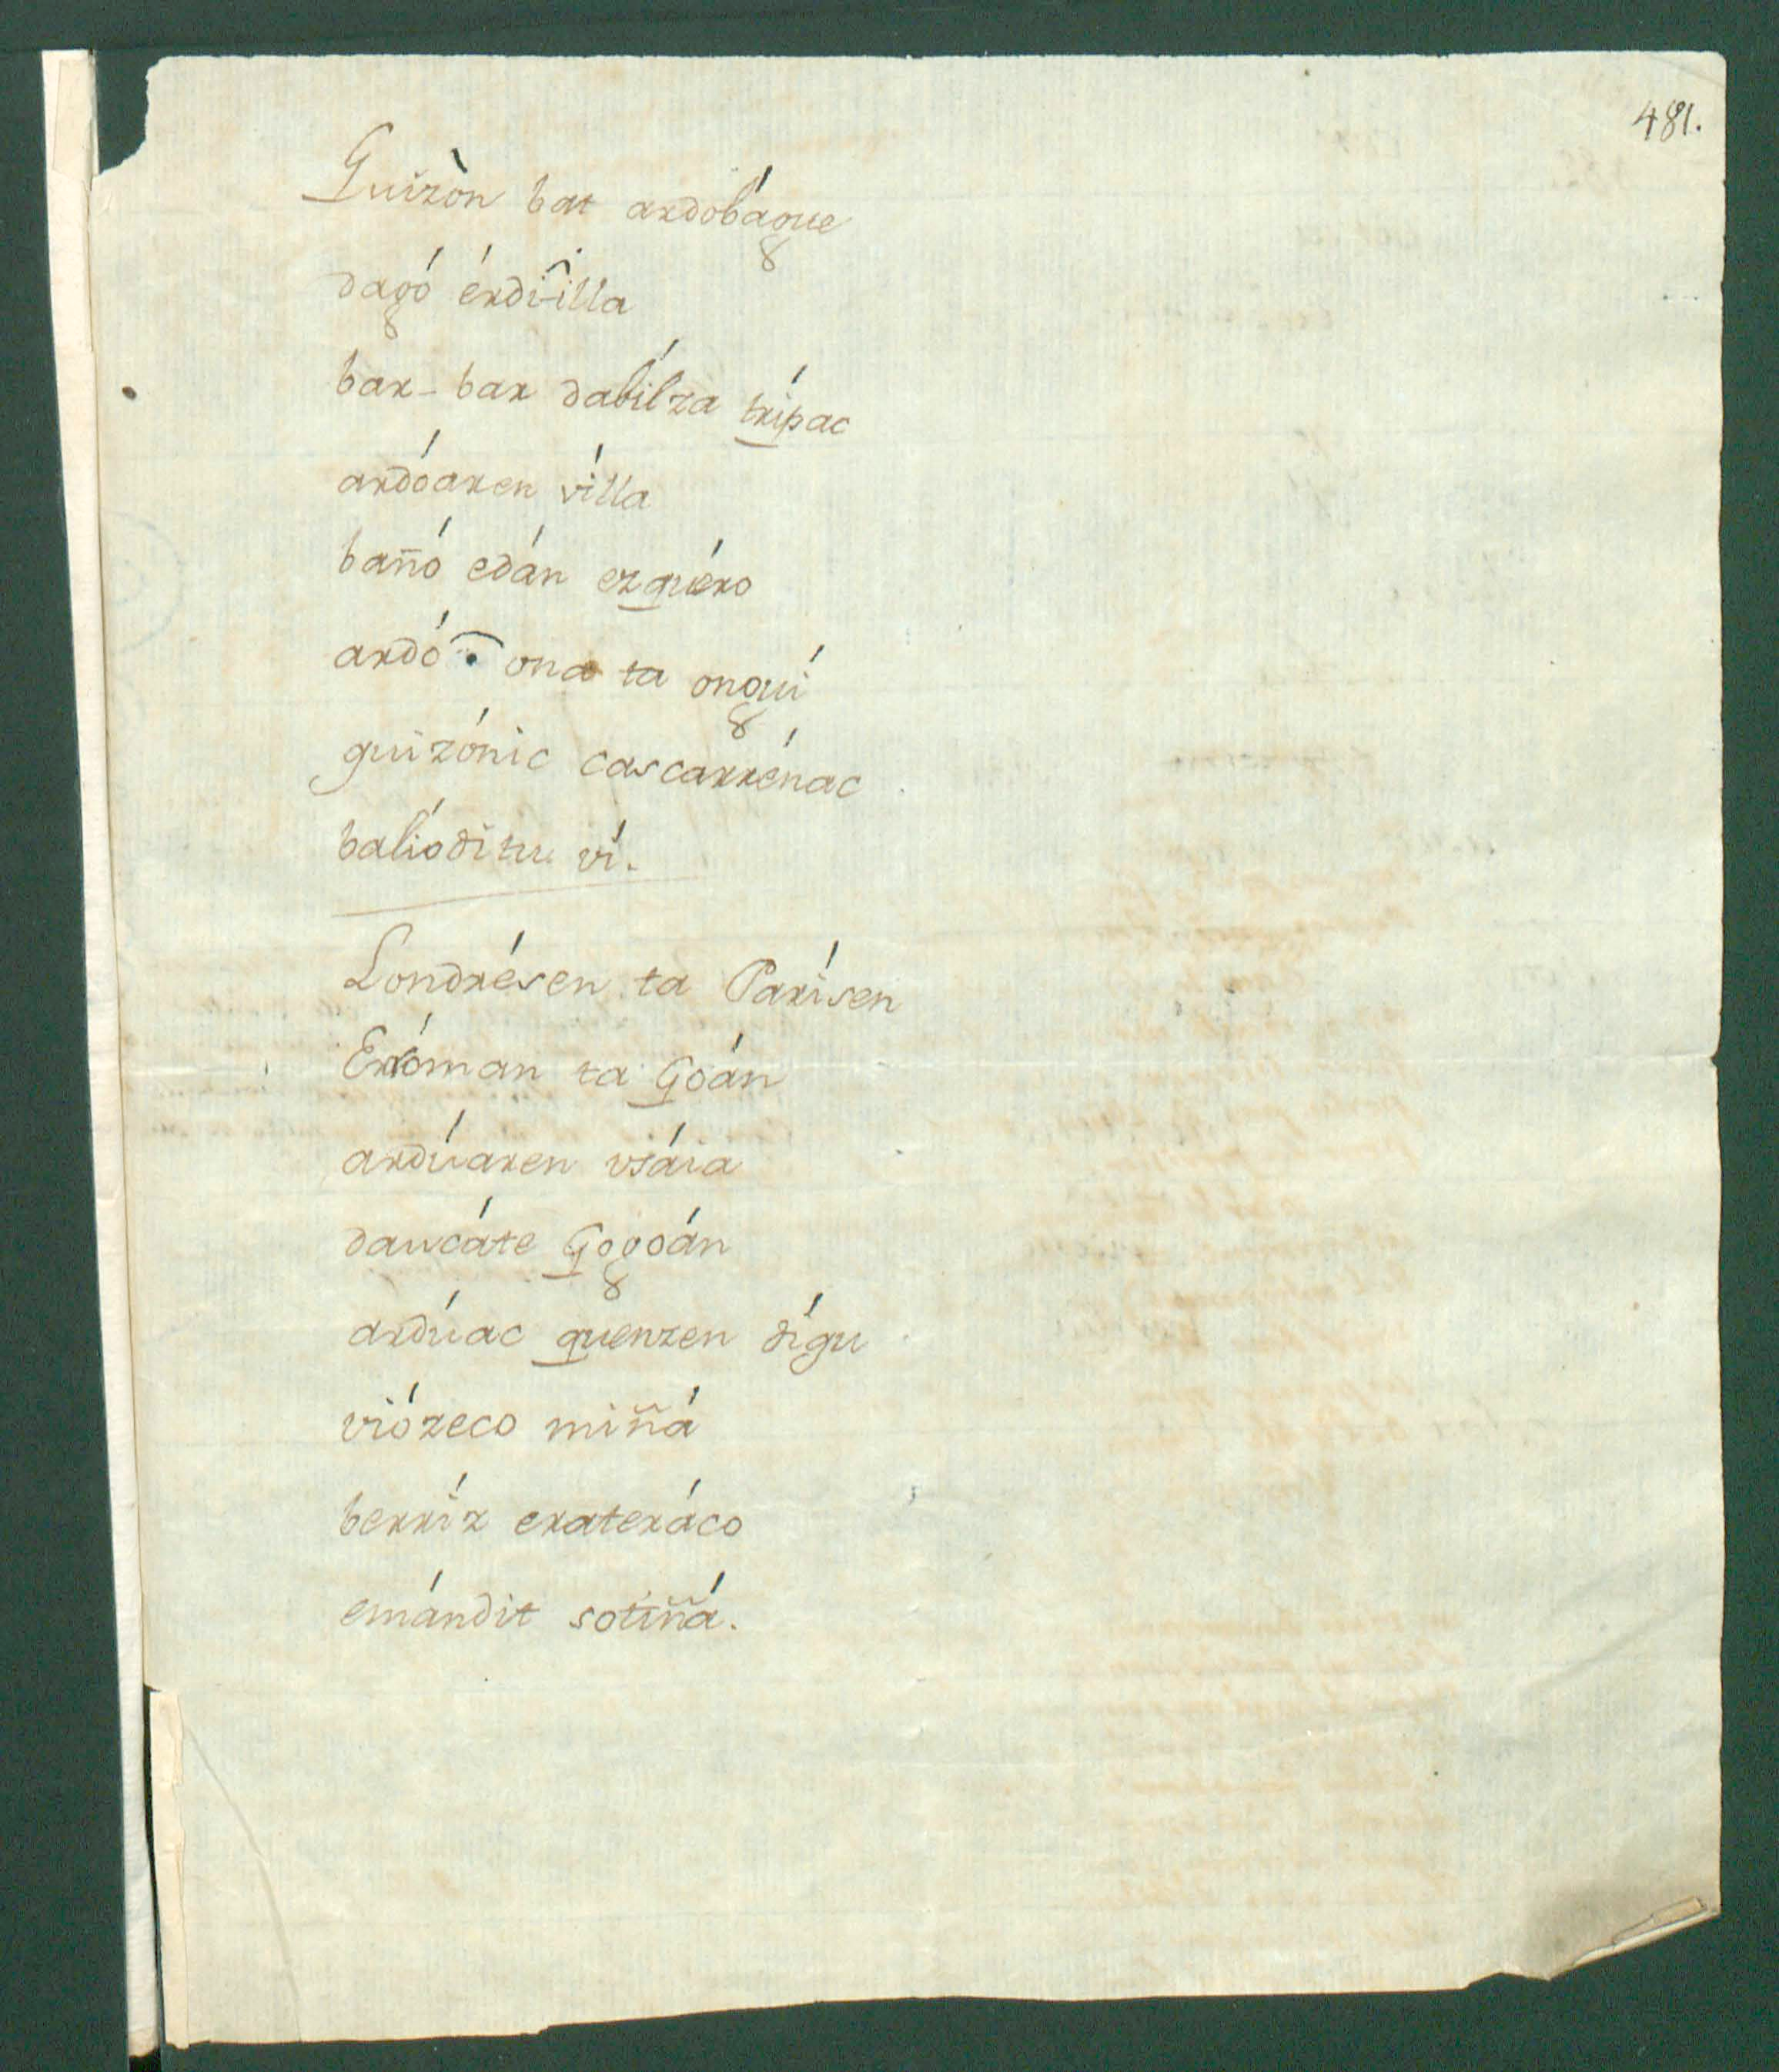 481.
Guizòn bat ardobágue
dagó érdi-illa
bar-bar dabílza trípac
ardóaren vílla
bañó edán ezguéro
ardó ona ta onguí
guizónic cascarrénac
balíoditu ví.
Londrésen ta Parísen
Erróman ta Goán
ardúaren usáia
daucáte Gogoán
ardúac guenzen dígu
viózeco miñá
berríz erateráco
emándit sotiñá.